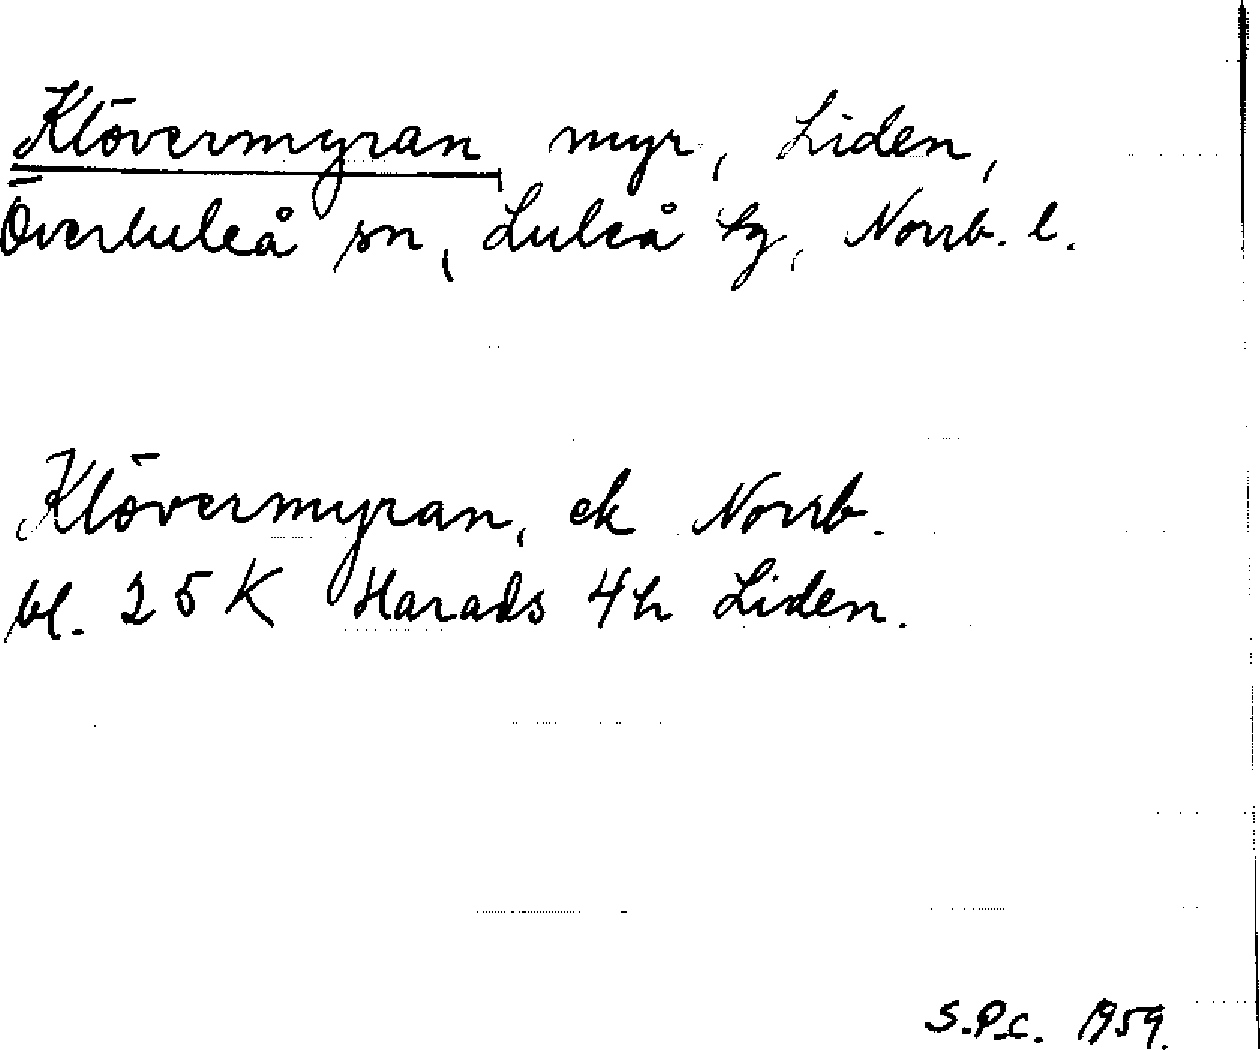 Klövermyran, myr, Liden,
Överluleå sn, Luleå tg, Norrb. l.
Klövermyran, ek Norrb.
bl. 25 K Harads 4h Liden.
S.P.L. 1959.